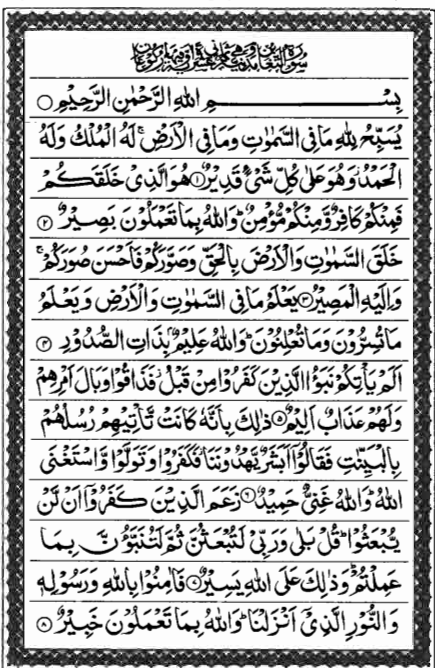 سورة التغابن مدنية وهي ثماني عشرة اية وفيها ركوعان
بِسْمِ اللهِ الرَّحْمٰنِ الرَّحِيْمِ ○
يُسَبِّحُ لِلّٰهِ مَا فِى السَّمٰوٰتِ وَمَا فِى الْاَرْضِ ۚ لَهُ الْمُلْكُ وَلَهُ
الْحَمْدُ ۫ وَهُوَ عَلٰى كُلِّ شَىْءٍ قَدِيْرٌ ۝۱ هُوَ الَّذِىْ خَلَقَكُمْ
فَمِنْكُمْ كَافِرٌ وَّمِنْكُمْ مُّؤْمِنٌ ؕ وَاللهُ بِمَا تَعْمَلُوْنَ بَصِيْرٌ ۝۲
خَلَقَ السَّمٰوٰتِ وَالْاَرْضَ بِالْحَقِّ وَصَوَّرَكُمْ فَاَحْسَنَ صُوَرَكُمْ ۚ
وَاِلَيْهِ الْمَصِيْرُ ۝۳ يَعْلَمُ مَا فِى السَّمٰوٰتِ وَالْاَرْضِ وَيَعْلَمُ
مَا تُسِرُّوْنَ وَمَا تُعْلِنُوْنَ ؕ وَاللهُ عَلِيْمٌۢ بِذَاتِ الصُّدُوْرِ ۝۴
اَلَمْ يَاْتِكُمْ نَبَؤُا الَّذِيْنَ كَفَرُوْا مِنْ قَبْلُ ؗ فَذَاقُوْا وَبَالَ اَمْرِهِمْ
وَلَهُمْ عَذَابٌ اَلِيْمٌ ۝۵ ذٰلِكَ بِاَنَّهٗ كَانَتْ تَّاْتِيْهِمْ رُسُلُهُمْ
بِالْبَيِّنٰتِ فَقَالُوْٓا اَبَشَرٌ يَّهْدُوْنَنَا ؗ فَكَفَرُوْا وَتَوَلَّوْا وَّاسْتَغْنَى
اللهُ ؕ وَاللهُ غَنِىٌّ حَمِيْدٌ ۝۶ زَعَمَ الَّذِيْنَ كَفَرُوْٓا اَنْ لَّنْ
يُّبْعَثُوْا ؕ قُلْ بَلٰى وَرَبِّىْ لَتُبْعَثُنَّ ثُمَّ لَتُنَبَّؤُنَّ بِمَا
عَمِلْتُمْ ؕ وَذٰلِكَ عَلَى اللهِ يَسِيْرٌ ۝۷ فَاٰمِنُوْا بِاللهِ وَرَسُوْلِهٖ
وَالنُّوْرِ الَّذِىْٓ اَنْزَلْنَا ؕ وَاللهُ بِمَا تَعْمَلُوْنَ خَبِيْرٌ ۝۸